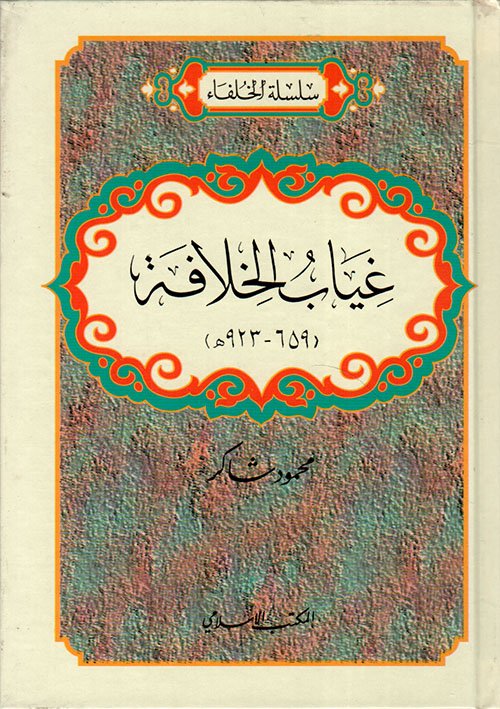 سلسلة الخلفاء
غِيَابُ الخِلَافَة
(٦٥٩ - ٩٢٣ هـ)
محمود شاكر
المكتب الإسلامي